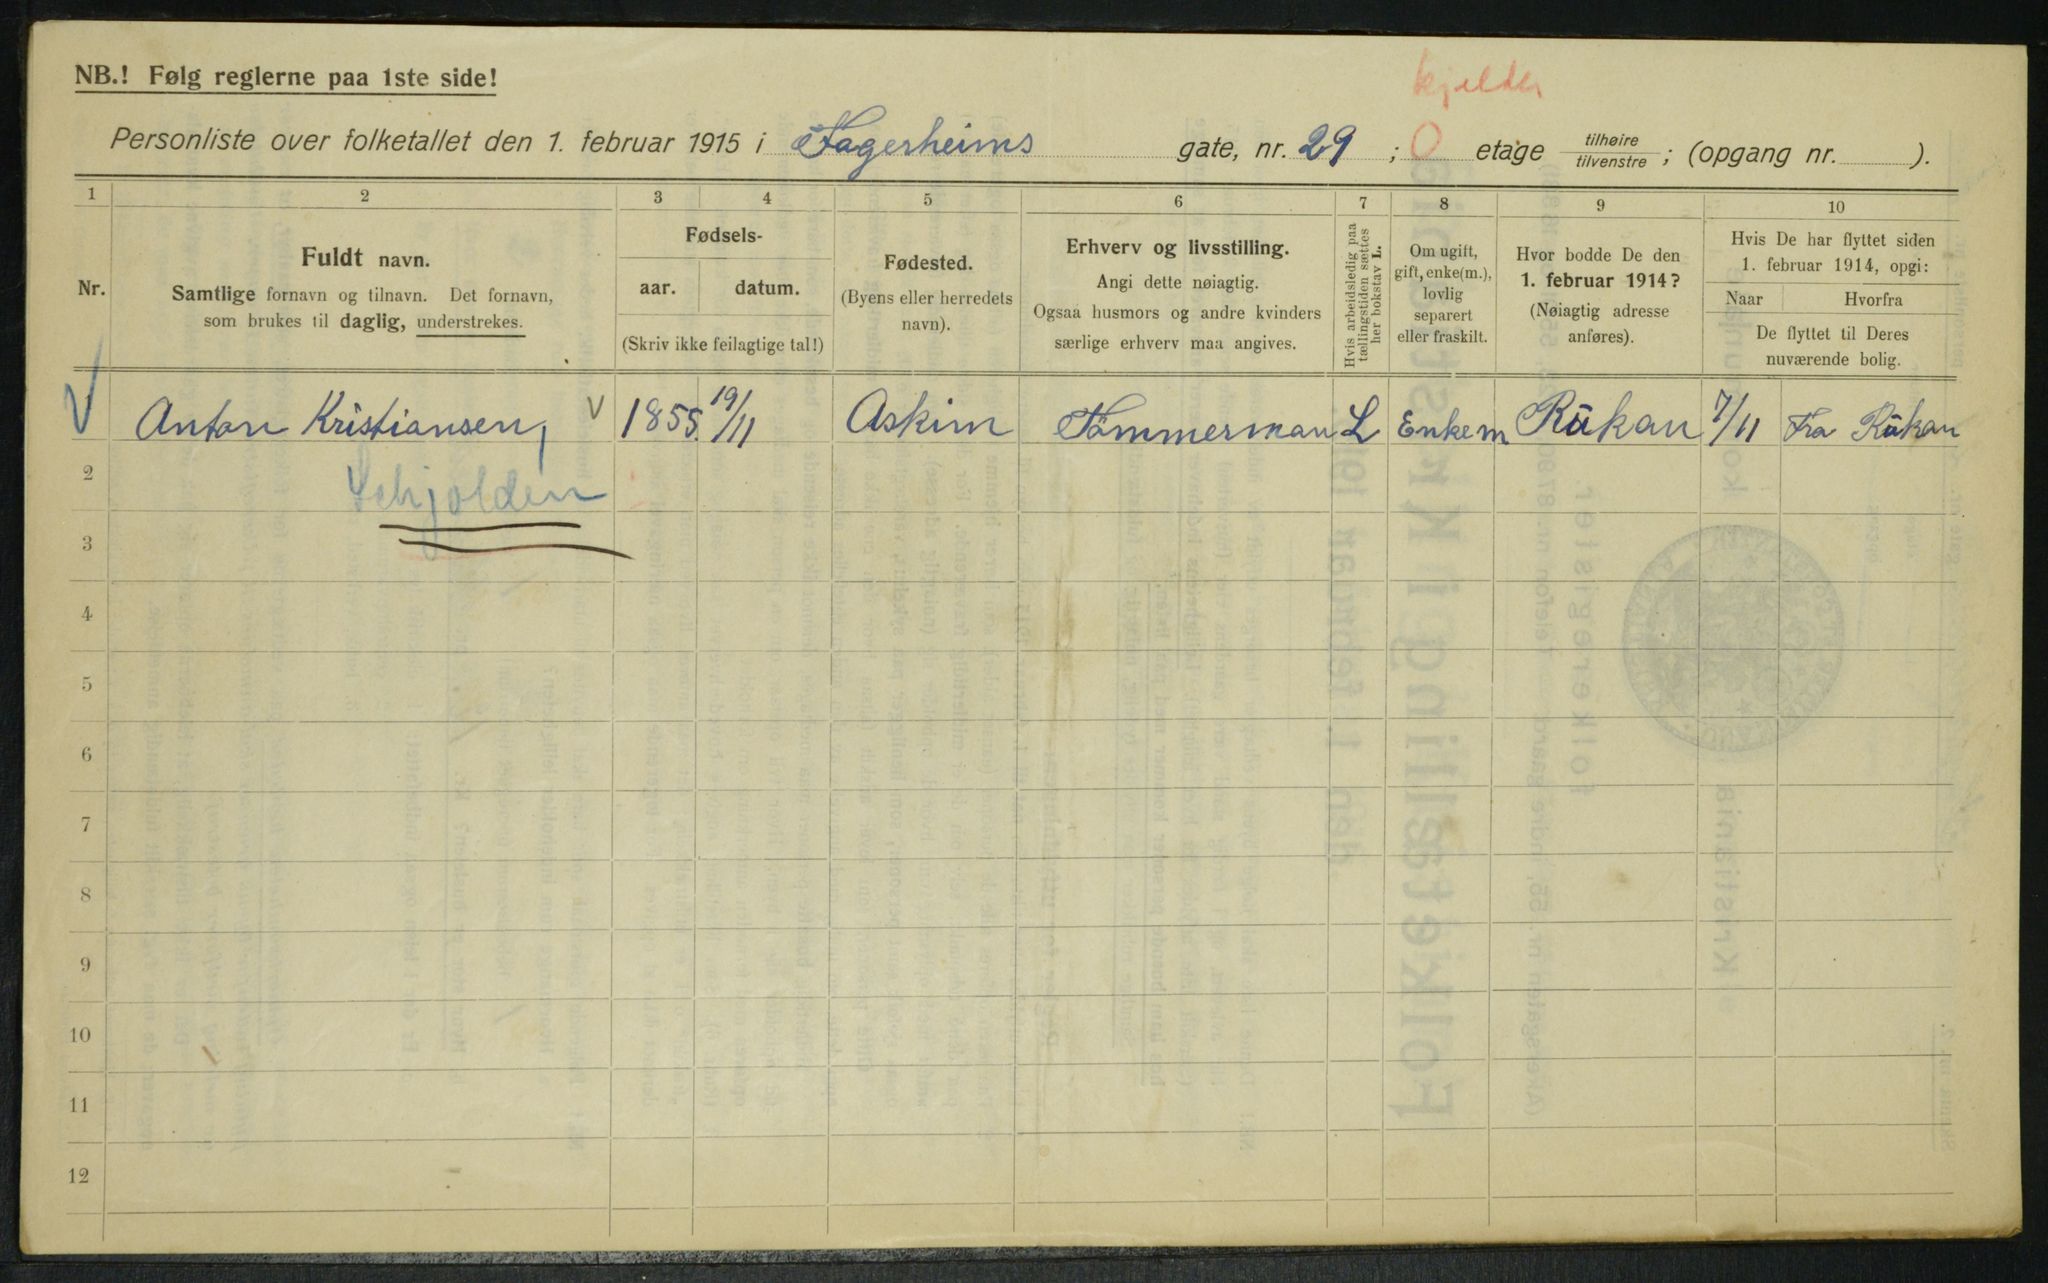 kjelder
NB.! Følg reglerne paa 1ste side!
Personliste over folketallet den 1. februar 1915 i Fagerheims gate, nr. 29 ; 0 etage tilhøire tilvenstre ; (opgang nr. ).
1 2 3 4 5 6 7 8 9 10
Nr.
Fuldt navn.
Samtlige fornavn og tilnavn. Det fornavn,
som brukes til daglig, understrekes.
Fødsels-
aar. datum.
(Skriv ikke feilagtige tal!)
Fødested.
(Byens eller herredets
navn).
Erhverv og livsstilling.
Angi dette nøiagtig.
Ogsaa husmors og andre kvinders
særlige erhverv maa angives.
Hvis arbeidsledig paa
tællingstiden sættes
her bokstav L.
Om ugift,
gift, enke(m.),
lovlig
separert
eller fraskilt.
Hvor bodde De den
1. februar 1914?
(Nøiagtig adresse
anføres).
Hvis De har flyttet siden
1. februar 1914, opgi:
Naar Hvorfra
De flyttet til Deres
nuværende bolig.
1 Anton Kristiansen, 1855. 19/11 Askim Tömmerman L Enkem Rükan 7/11 Fra Rükan
2 Schjolden
3
4
5
6
7
8
9
10
11
12